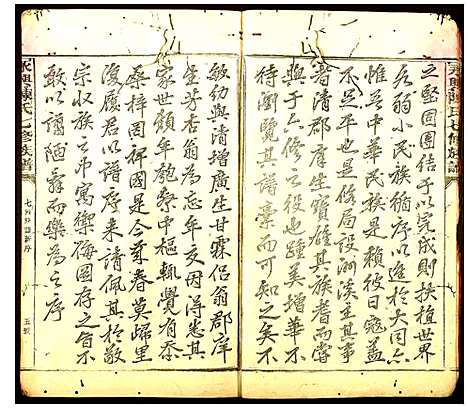 之堅固團結于以完成則扶植世界
名弱小民族循序以進於大同亦
惟茲中華民族是賴被日寇蓋
不足平也同族設洲溪主其事
者清郡庠生寶雄其族耆而嘗
與于六修之役也踵美增華不
待瀏覽其譜稾而可知之矣不
敏幼與清增廣生甘霖侶翁郡庠
生芳杏翁為忘年友因得悉其
家世頻年匏繫中樞輒覺有忝
桑梓罔裨國是今茲春莫歸里
復履君以譜序來請佩其於敬
宗收族之中寓禦侮圖存之旨不
敢以譾陋辭而樂為之序
永興陳氏七修族譜
永興陳氏七修族譜
七修族譜新序
五號